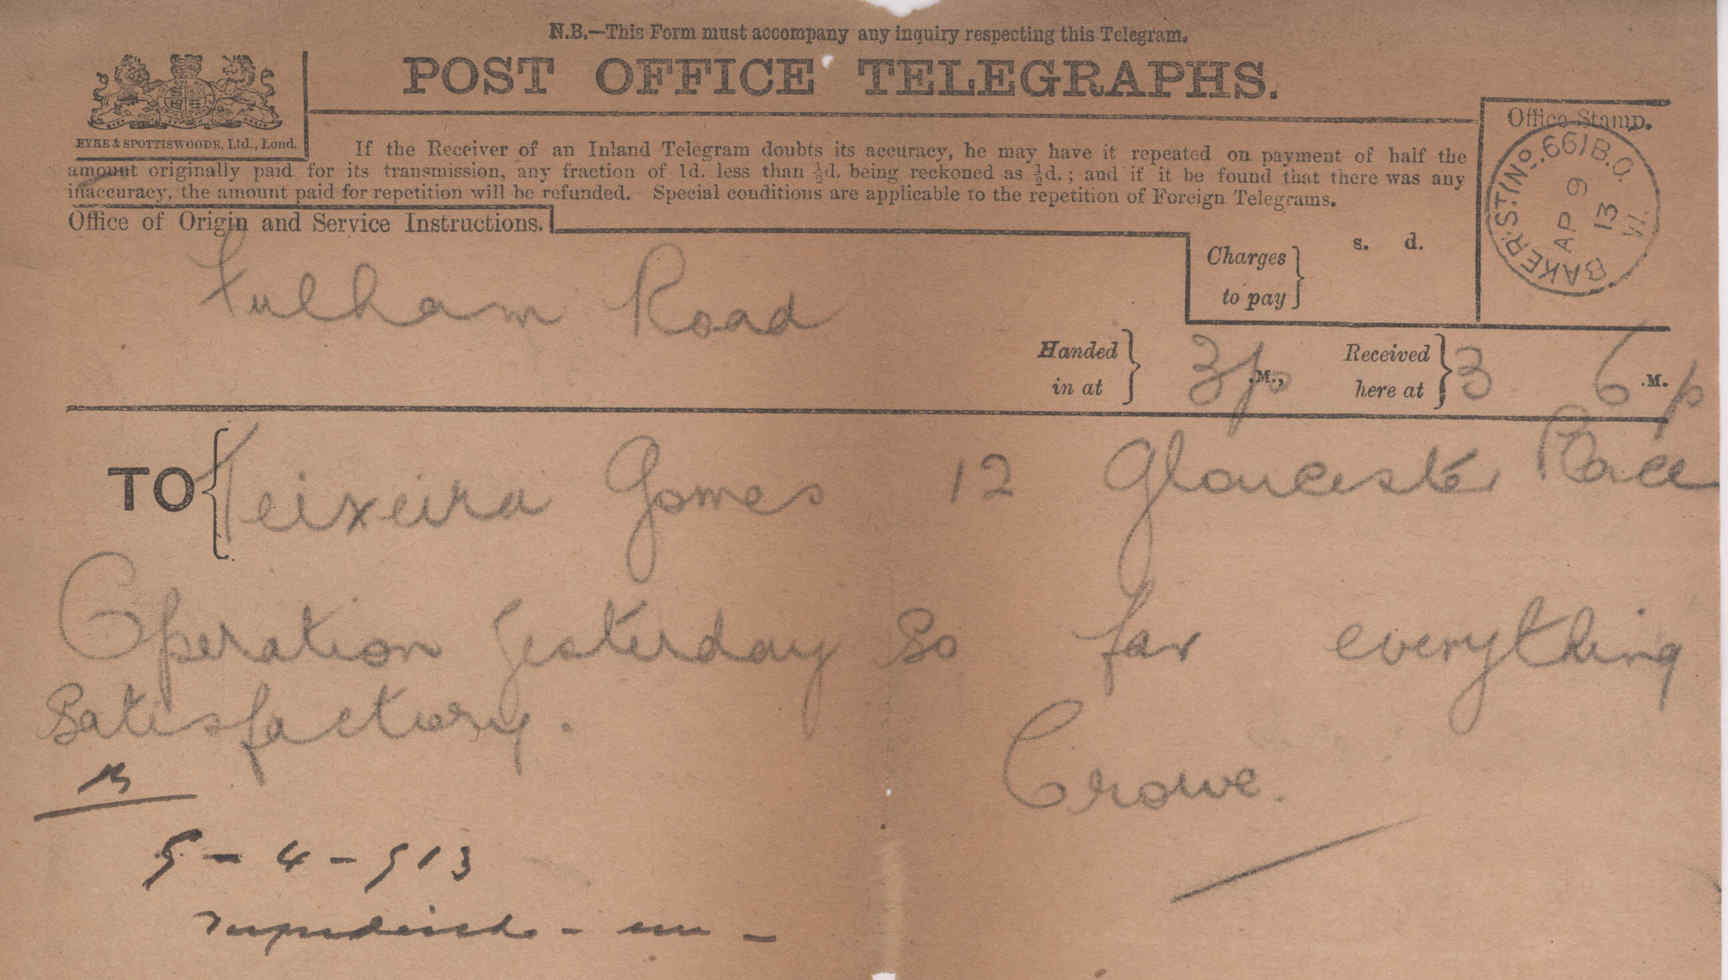 N.B.—This Form must accompany any inquiry respecting this Telegram.
POST OFFICE TELEGRAPHS.
EYRE & SPOTTISWOODE, Ltd., Lond.
If the Receiver of an Inland Telegram doubts its accuracy, he may have it repeated on payment of half the
amount originally paid for its transmission, any fraction of 1d. less than ½d. being reckoned as ½d.; and if it be found that there was any
inaccuracy, the amount paid for repetition will be refunded. Special conditions are applicable to the repetition of Foreign Telegrams.
Office Stamp.
BAKER·ST(No.66)B.O.
AP 9
13
VI.
Office of Origin and Service Instructions.
Fulham Road
Charges to pay s. d.
Handed in at 3 p .M., Received here at 3 6 p .M.
TO Teixeira Gomes 12 Gloucester Place
Operation yesterday so far everything
satisfactory.
Crowe.
9-4-913